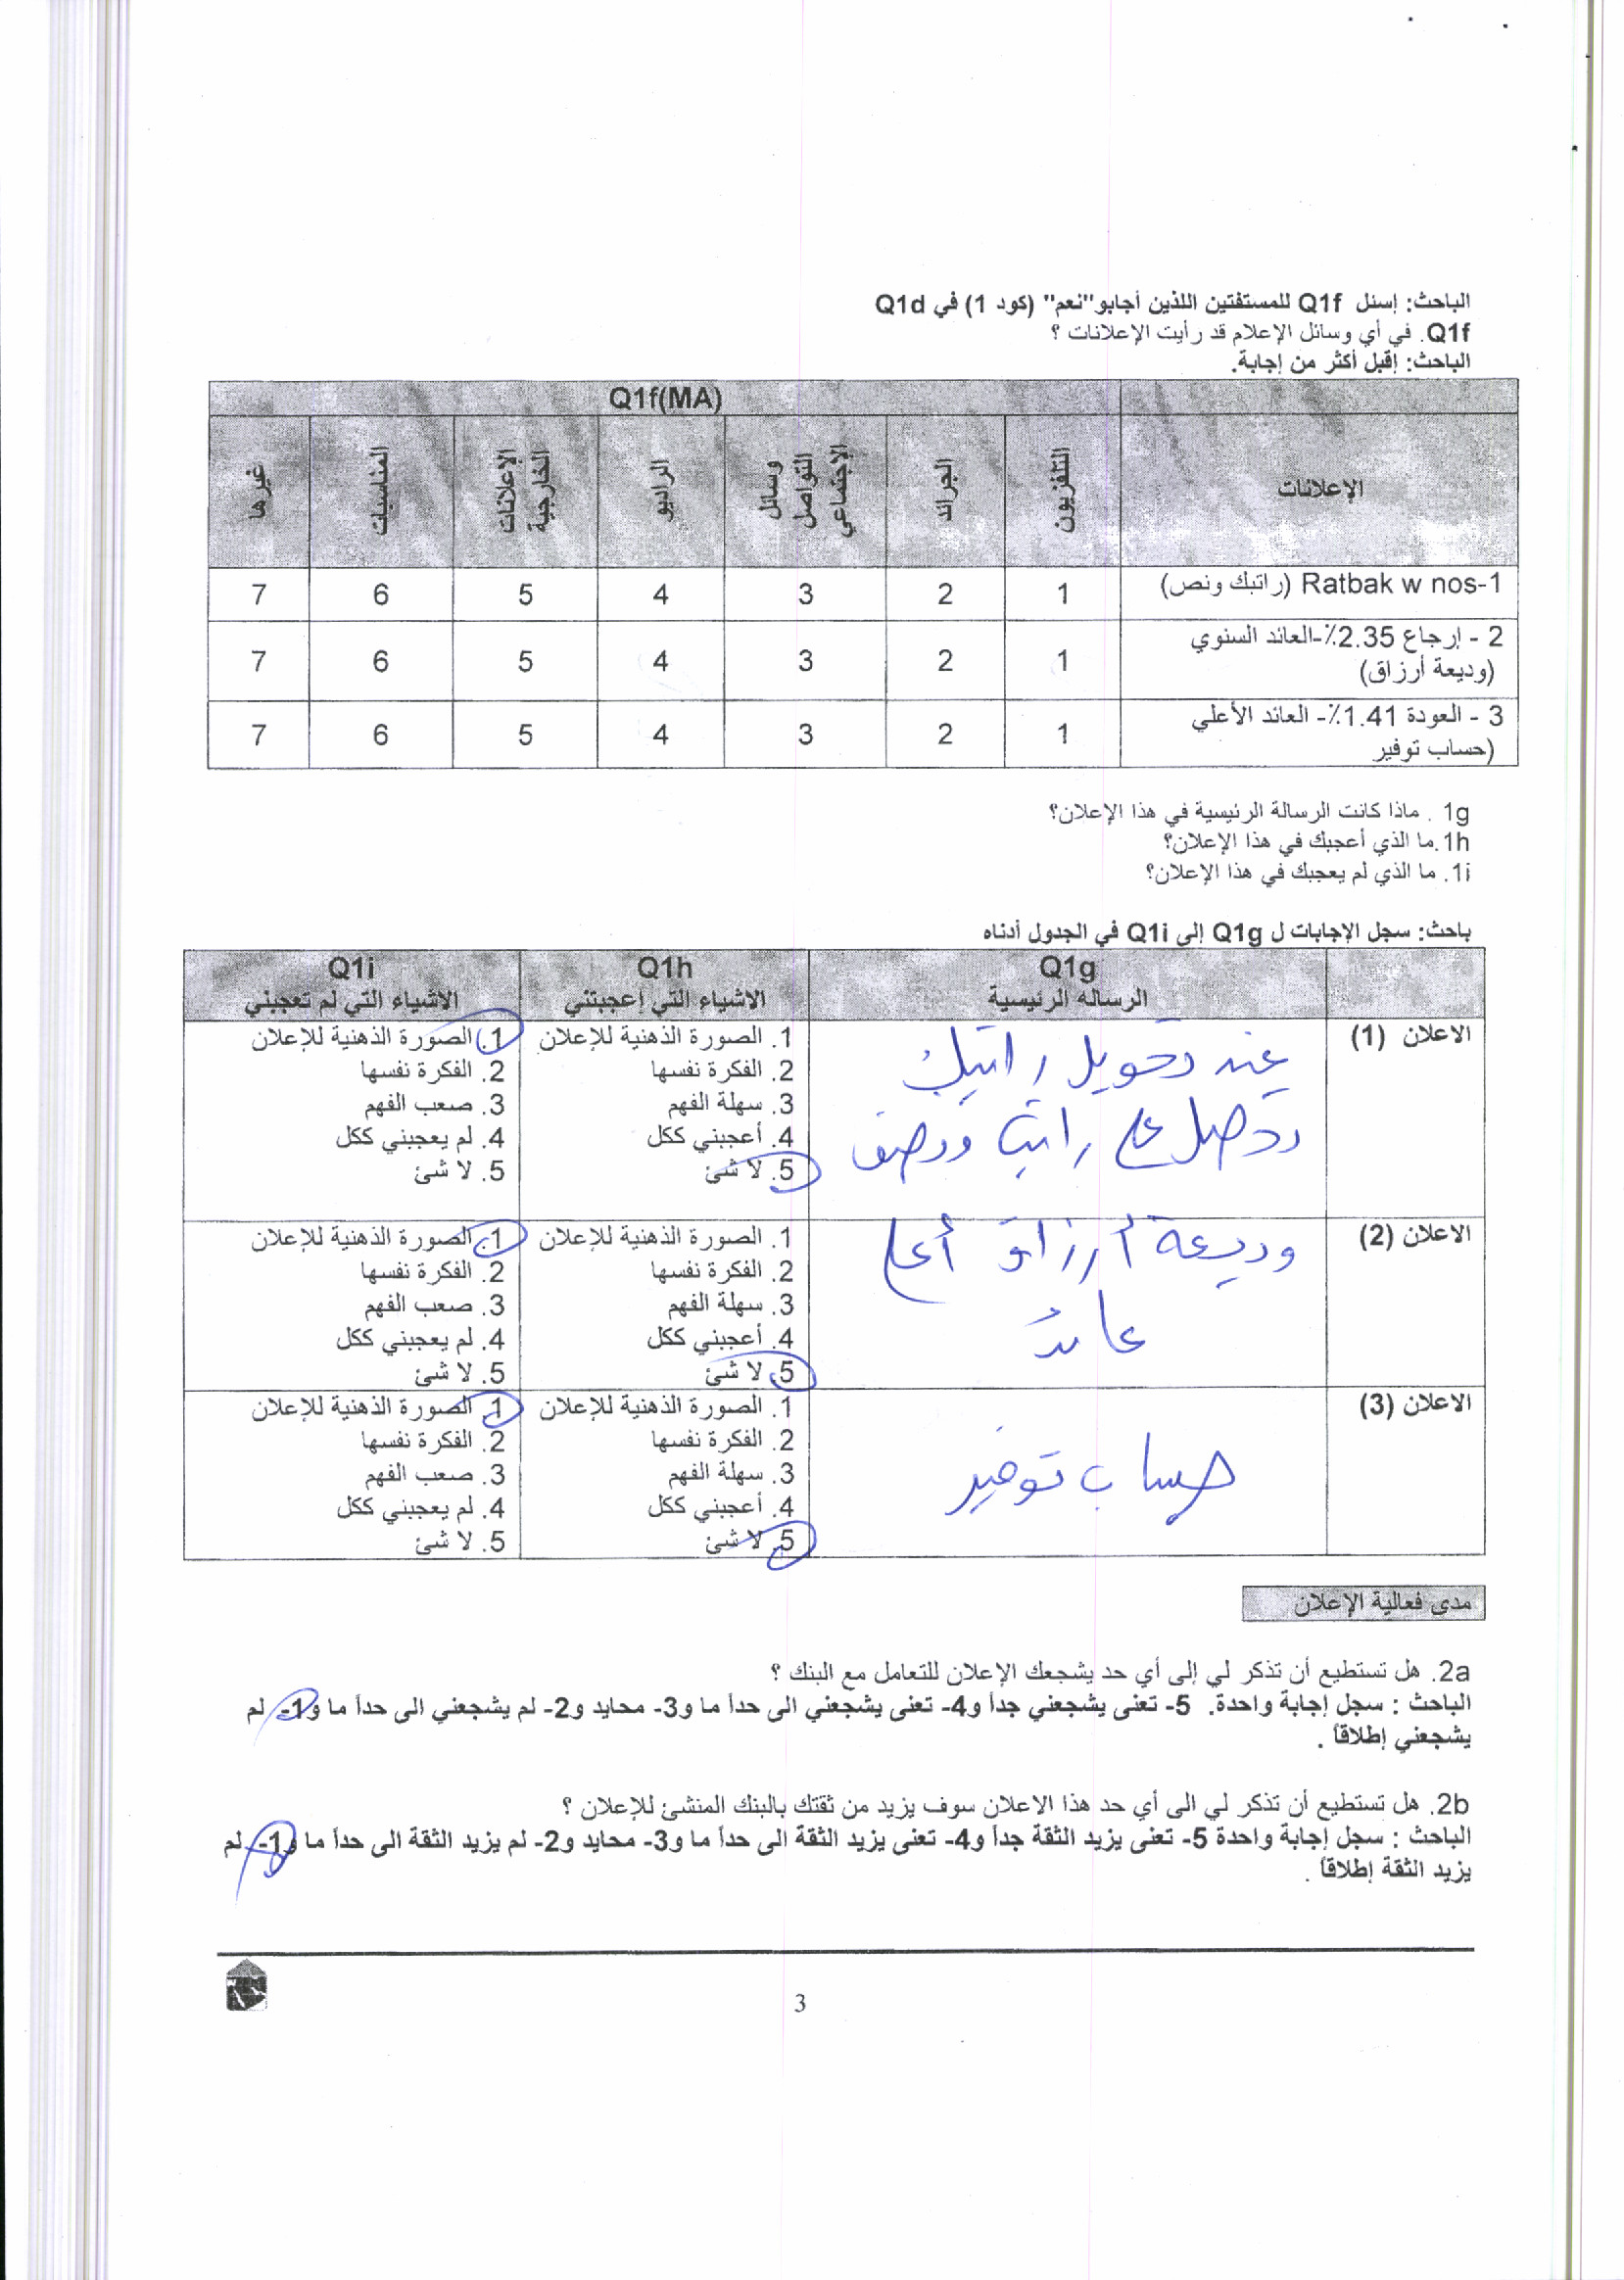 الباحث: إسئل Q1f للمستفتين اللذين أجابو"نعم" (كود 1) في Q1d
Q1f. في أي وسائل الإعلام قد رأيت الإعلانات ؟
الباحث: إقبل أكثر من إجابة.
Q1f(MA)
الإعلانات
التلفزيون
الجرائد
وسائل التواصل الإجتماعي
الراديو
الإعلانات الخارجية
المناسبات
غيرها
Ratbak w nos-1 (راتبك ونص) 1 2 3 4 5 6 7
2 - إرجاع 2.35٪-العائد السنوي
(وديعة أرزاق) 1 2 3 4 5 6 7
3 - العودة 1.41٪- العائد الأعلي
(حساب توفير 1 2 3 4 5 6 7
1g . ماذا كانت الرسالة الرئيسية في هذا الإعلان؟
1h.ما الذي أعجبك في هذا الإعلان؟
1i. ما الذي لم يعجبك في هذا الإعلان؟
باحث: سجل الإجابات ل Q1g إلى Q1i في الجدول أدناه
Q1g
الرساله الرئيسية
Q1h
الاشياء التي اعجبتني
Q1i
الاشياء التي لم تعجبني
الاعلان (1)
عند تحويل راتبك
تحصل على راتب ونصف
1. الصورة الذهنية للإعلان
2. الفكرة نفسها
3. سهلة الفهم
4. أعجبني ككل
5. لا شئ
1. الصورة الذهنية للإعلان
2. الفكرة نفسها
3. صعب الفهم
4. لم يعجبني ككل
5. لا شئ
الاعلان (2)
وديعة أرزاق أعلى
عائد
1. الصورة الذهنية للإعلان
2. الفكرة نفسها
3. سهلة الفهم
4. أعجبني ككل
5. لا شئ
1. الصورة الذهنية للإعلان
2. الفكرة نفسها
3. صعب الفهم
4. لم يعجبني ككل
5. لا شئ
الاعلان (3)
حساب توفير
1. الصورة الذهنية للإعلان
2. الفكرة نفسها
3. سهلة الفهم
4. أعجبني ككل
5. لا شئ
1. الصورة الذهنية للإعلان
2. الفكرة نفسها
3. صعب الفهم
4. لم يعجبني ككل
5. لا شئ
مدى فعالية الإعلان
2a. هل تستطيع أن تذكر لي إلى أي حد يشجعك الإعلان للتعامل مع البنك ؟
الباحث : سجل إجابة واحدة. 5- تعنى يشجعني جداً و4- تعنى يشجعني الى حداً ما و3- محايد و2- لم يشجعني الى حداً ما و1- لم
يشجعني إطلاقاً .
2b. هل تستطيع أن تذكر لي الى أي حد هذا الاعلان سوف يزيد من ثقتك بالبنك المنشئ للإعلان ؟
الباحث : سجل إجابة واحدة 5- تعنى يزيد الثقة جداً و4- تعنى يزيد الثقة الى حداً ما و3- محايد و2- لم يزيد الثقة الى حداً ما و1- لم
يزيد الثقة إطلاقاً .
3